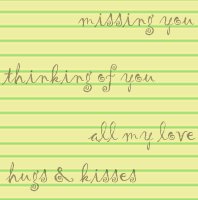 missing you
thinking of you
all my love
hugs & kisses